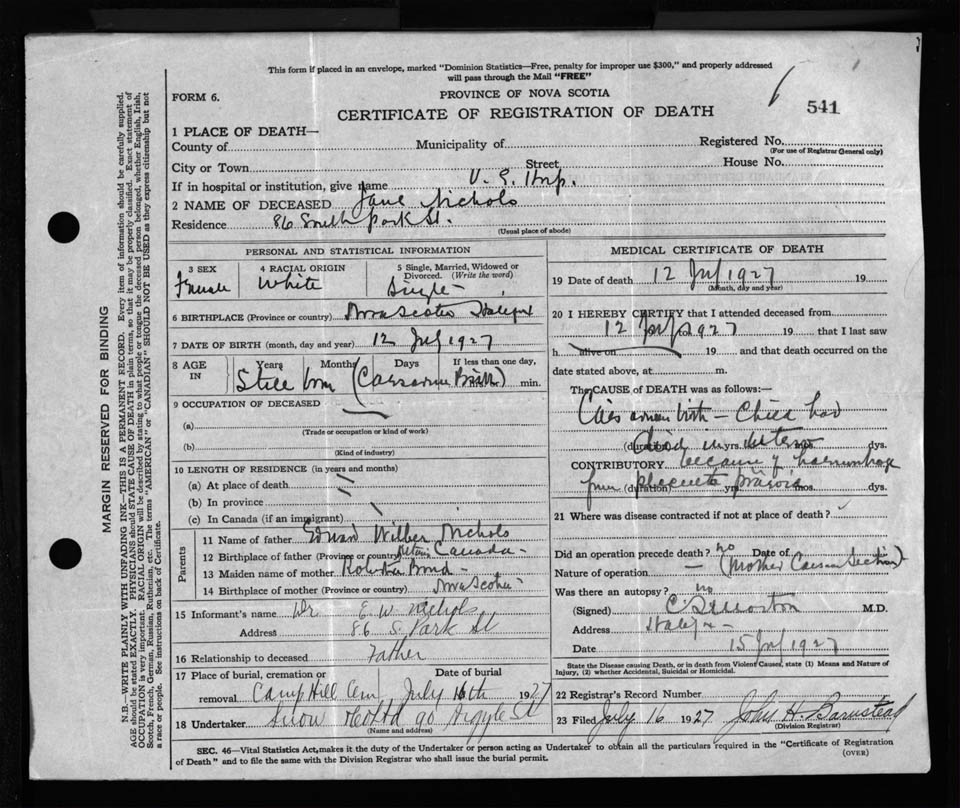 This form if placed in an envelope, marked "Dominion Statistics—Free, penalty for improper use $300," and properly addressed
will pass through the Mail "FREE"
FORM 6.
PROVINCE OF NOVA SCOTIA
541
CERTIFICATE OF REGISTRATION OF DEATH
1 PLACE OF DEATH—
County of Municipality of Registered No.
(For use of Registrar General only)
City or Town Street House No.
If in hospital or institution, give name V. G. Hosp.
2 NAME OF DECEASED Jane Nichols
Residence 86 South Park St.
(Usual place of abode)
PERSONAL AND STATISTICAL INFORMATION
3 SEX 4 RACIAL ORIGIN 5 Single, Married, Widowed or
Divorced. (Write the word)
Female White Single
6 BIRTHPLACE (Province or country) Nova Scotia Halifax
7 DATE OF BIRTH (month, day and year) 12 July 1927
8 AGE IN Years Months Days If less than one day,
Still born (Caesarian Birth) min.
9 OCCUPATION OF DECEASED
(a)
(Trade or occupation or kind of work)
(b)
(Kind of industry)
10 LENGTH OF RESIDENCE (in years and months)
(a) At place of death
(b) In province
(c) In Canada (if an immigrant)
Parents
11 Name of father Edward Wilber Nichols
12 Birthplace of father (Province or country) Canada
13 Maiden name of mother Bond
14 Birthplace of mother (Province or country) Nova Scotia
15 Informant's name Dr. E W Nichols
Address 86 S. Park St
16 Relationship to deceased Father
17 Place of burial, cremation or Date of burial
removal Camp Hill Cem July 16th 1927
18 Undertaker Snow 90 Argyle St
(Name and address)
MEDICAL CERTIFICATE OF DEATH
19 Date of death 12 July 1927 19
(Month, day and year)
20 I HEREBY CERTIFY that I attended deceased from
12 July 1927 19 that I last saw
h alive on 19 and that death occurred on the
date stated above, at m.
The CAUSE OF DEATH was as follows:—
Caesarian birth — Child had
died in utero
(duration) yrs. mos. dys.
CONTRIBUTORY because of haemorrhage
from placenta praevia
(duration) yrs. mos. dys.
21 Where was disease contracted if not at place of death?
Did an operation precede death? no Date of
Nature of operation — (Mother Caesar Section)
Was there an autopsy? no
(Signed) M.D.
Address Halifax
Date 15 July 1927
State the Disease causing Death, or in death from Violent Causes, state (1) Means and Nature of
Injury, (2) whether Accidental, Suicidal or Homicidal.
22 Registrar's Record Number
23 Filed July 16 1927 John H. Barnstead
(Division Registrar)
SEC. 46—Vital Statistics Act, makes it the duty of the Undertaker or person acting as Undertaker to obtain all the particulars required in the "Certificate of Registration
of Death" and to file the same with the Division Registrar who shall issue the burial permit.
(OVER)
MARGIN RESERVED FOR BINDING
N.B.—WRITE PLAINLY WITH UNFADING INK—THIS IS A PERMANENT RECORD. Every item of information should be carefully supplied.
AGE should be stated EXACTLY. PHYSICIANS should STATE CAUSE OF DEATH in plain terms, so that it may be properly classified. Exact statement of
OCCUPATION is very important. RACIAL ORIGIN will be described by stating to what people or tongue the deceased person belonged, whether English, Irish,
Scotch, French, German, Russian, Ruthenian, etc. The terms "AMERICAN" or "CANADIAN" SHOULD NOT BE USED as they express citizenship but not
a race or people. See instructions on back of Certificate.